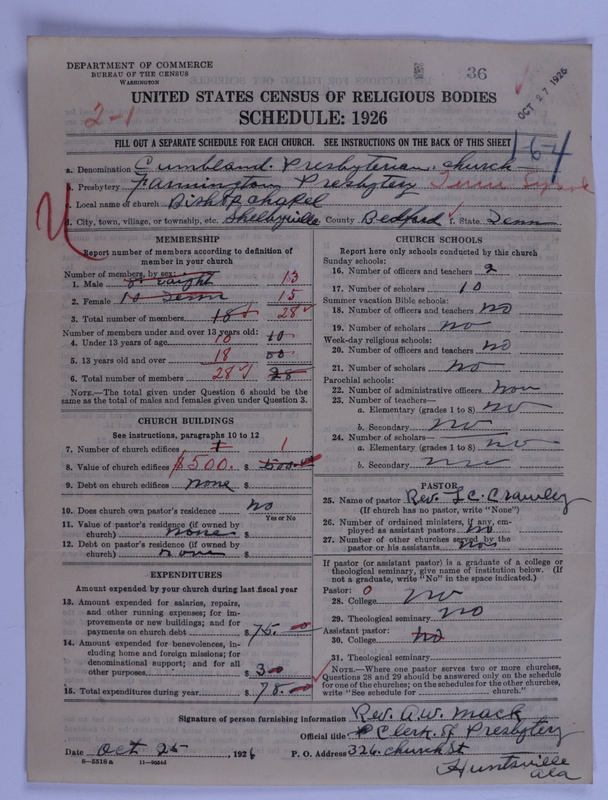 DEPARTMENT OF COMMERCE
BUREAU OF THE CENSUS
WASHINGTON
36
OCT 27 1926
UNITED STATES CENSUS OF RELIGIOUS BODIES
2-1
SCHEDULE: 1926
FILL OUT A SEPARATE SCHEDULE FOR EACH CHURCH. SEE INSTRUCTIONS ON THE BACK OF THIS SHEET
164
a. Denomination Cumbland Presbyterian church
b. Presbytery Farmington Presbytery Tenn
c. Local name of church Bishop chapel
d. City, town, village, or township, etc. Shelbyville County Bedford f. State Tenn
MEMBERSHIP
Report number of members according to definition of member in your church
Number of members, by sex:
1. Male 13
2. Female 15
3. Total number of members 18 28
Number of members under and over 13 years old:
4. Under 13 years of age 10 10
5. 13 years old and over 18
6. Total number of members 28 28
NOTE.—The total given under Question 6 should be the same as the total of males and females given under Question 3.
CHURCH BUILDINGS
See instructions, paragraphs 10 to 12
7. Number of church edifices 1 1
8. Value of church edifices $500. $ 500.00
9. Debt on church edifices none $
10. Does church own pastor's residence no
Yes or No
11. Value of pastor's residence (if owned by church) none $
12. Debt on pastor's residence (if owned by church) none $
EXPENDITURES
Amount expended by your church during last fiscal year
13. Amount expended for salaries, repairs, and other running expenses; for improvements or new buildings; and for payments on church debt $ 75.00
14. Amount expended for benevolences, including home and foreign missions; for denominational support; and for all other purposes $ 3.00
15. Total expenditures during year $ 78.00
CHURCH SCHOOLS
Report here only schools conducted by this church
Sunday schools:
16. Number of officers and teachers 2
17. Number of scholars 10
Summer vacation Bible schools:
18. Number of officers and teachers no
19. Number of scholars no
Week-day religious schools:
20. Number of officers and teachers no
21. Number of scholars no
Parochial schools:
22. Number of administrative officers non
23. Number of teachers—
a. Elementary (grades 1 to 8) no
b. Secondary no
24. Number of scholars—
a. Elementary (grades 1 to 8) no
b. Secondary no
PASTOR
25. Name of pastor Rev. L C. Crawley
(If church has no pastor, write "None")
26. Number of ordained ministers, if any, employed as assistant pastors no
27. Number of other churches served by the pastor or his assistants non
If pastor (or assistant pastor) is a graduate of a college or theological seminary, give name of institution below. (If not a graduate, write "No" in the space indicated.)
Pastor: 0
28. College no
29. Theological seminary no
Assistant pastor:
30. College no
31. Theological seminary
NOTE.—Where one pastor serves two or more churches, Questions 28 and 29 should be answered only on the schedule for one of the churches; on the schedules for the other churches, write "See schedule for church."
Signature of person furnishing information Rev. A.W. Mack
Official title Clerk of Presbytery
Date Oct 25, 1926 P. O. Address 326. church St
8-5518 a
Huntsville
Ala